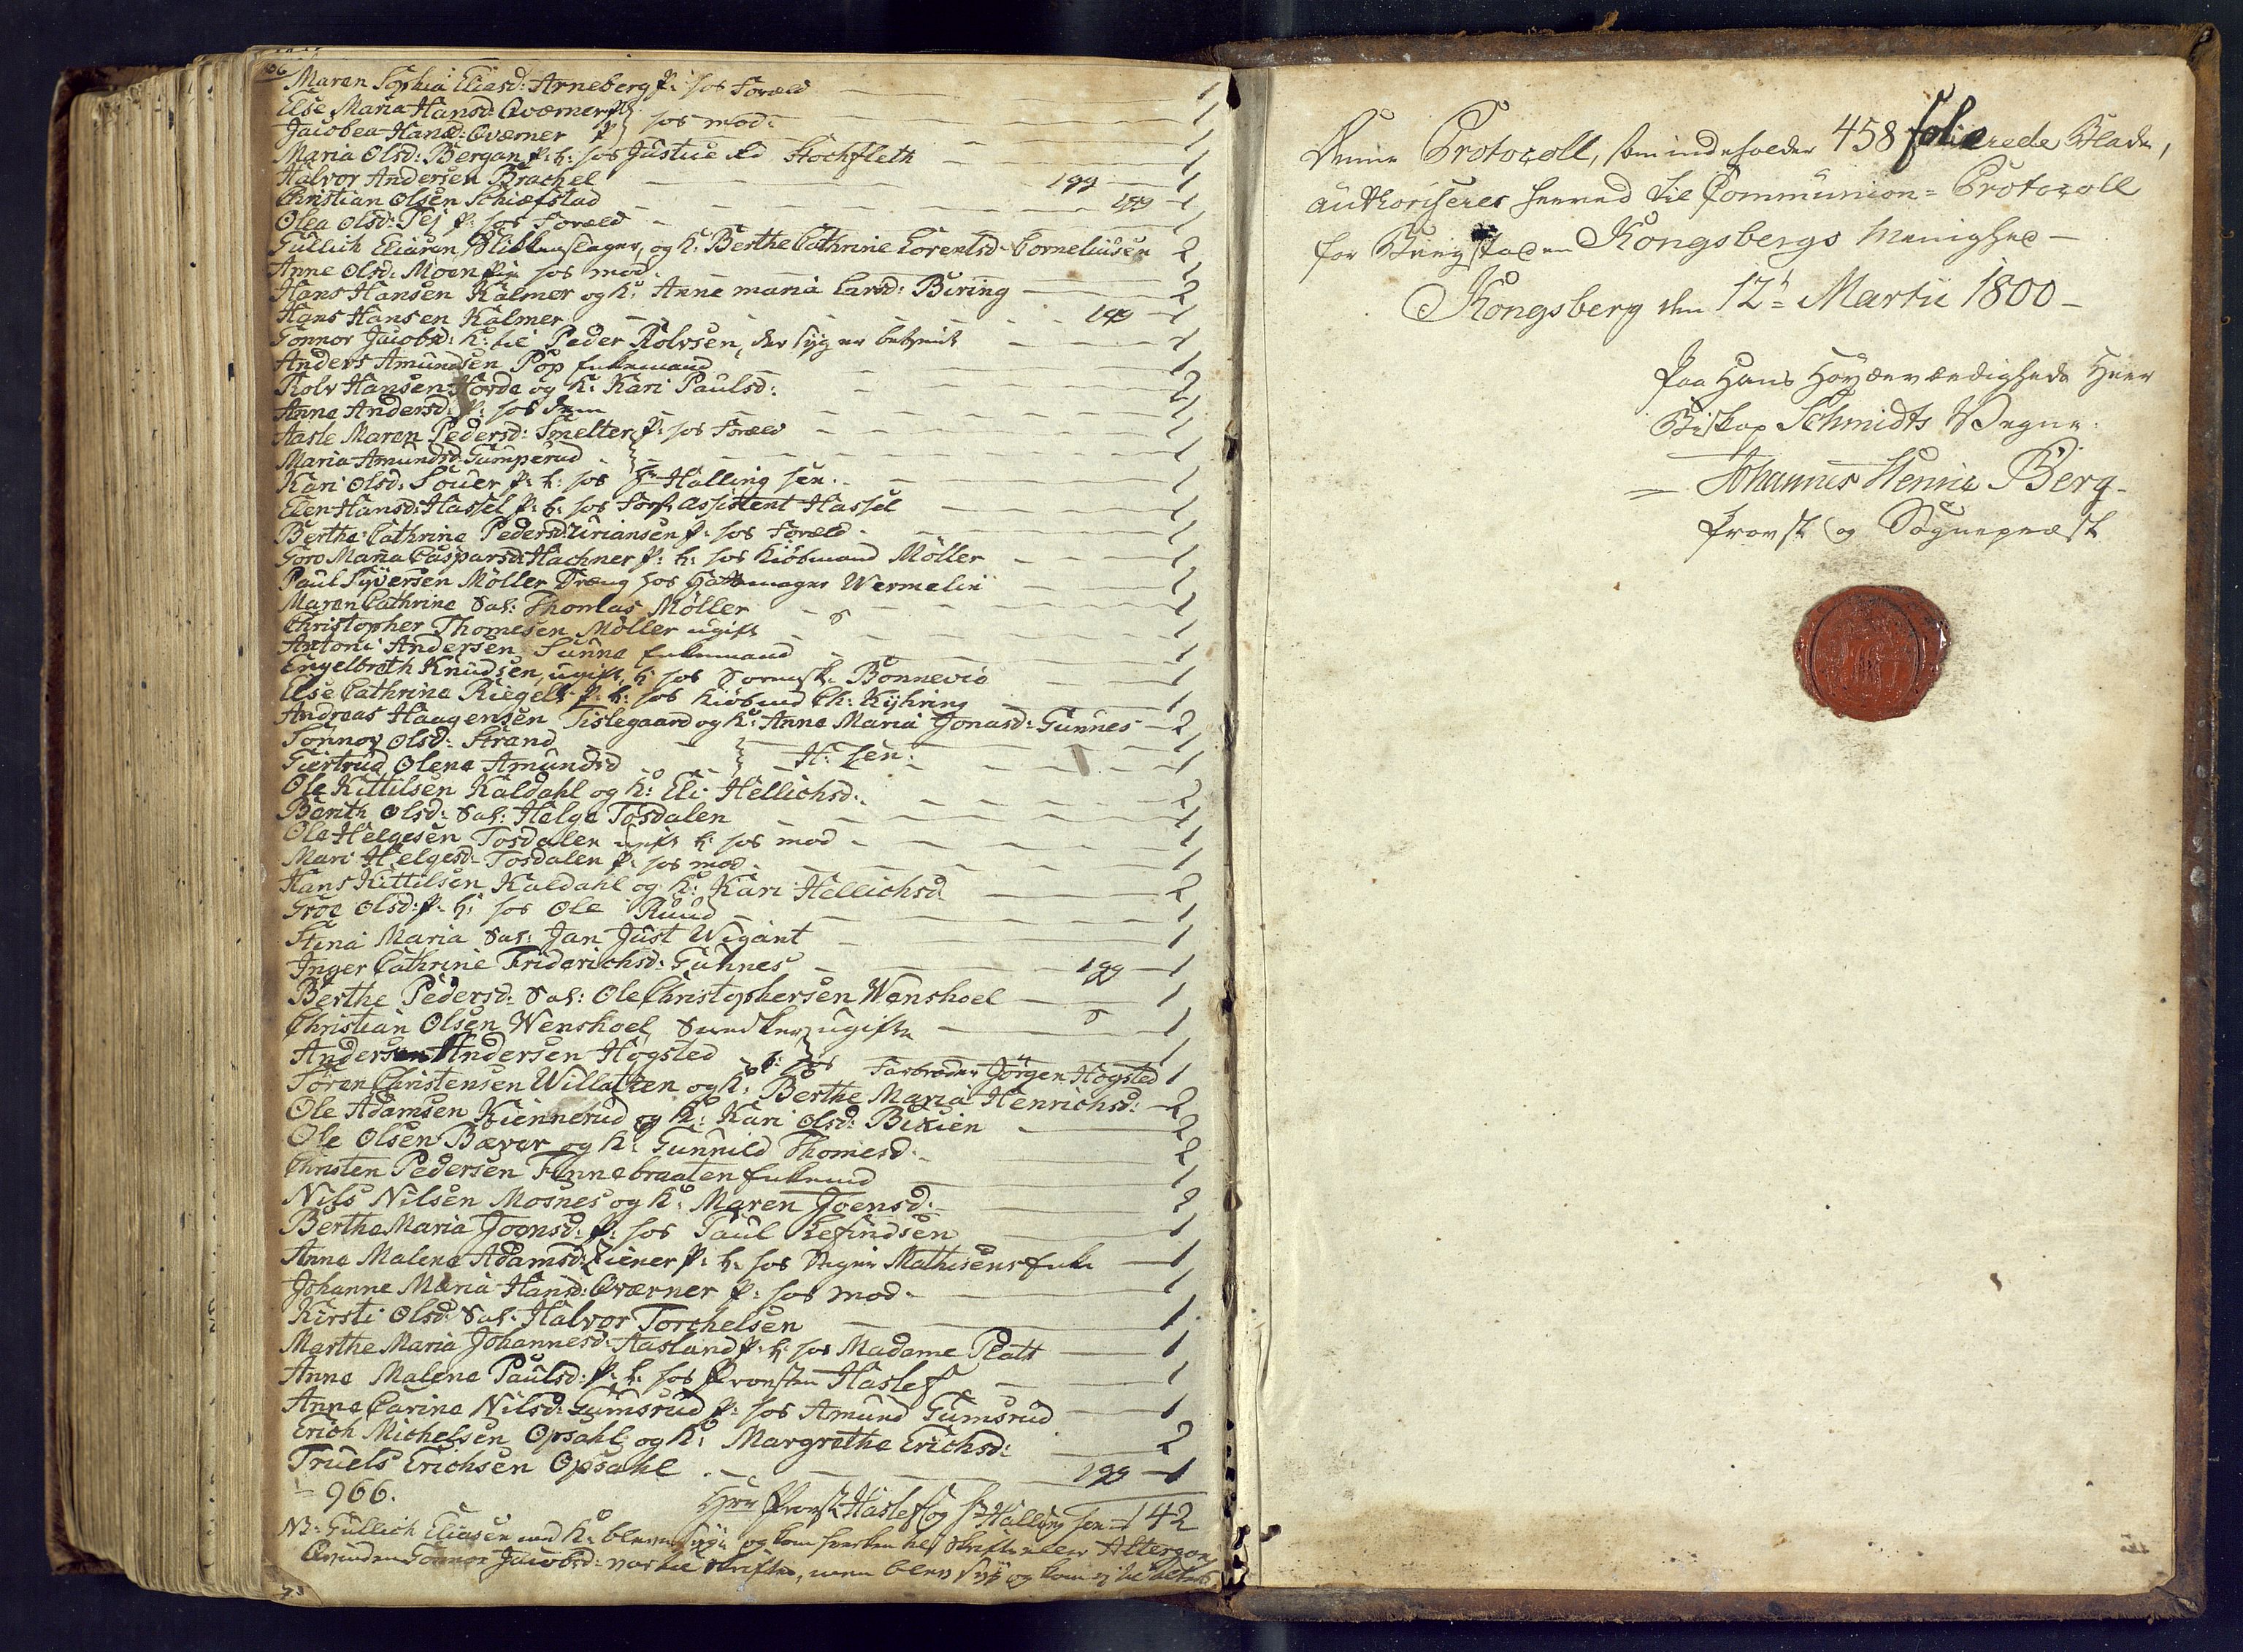 Maren Sophia Eliasd: Arneberg P: hos Foræld 1
Else Maria Hansd: Qværner P: 1
Jacobea Hansd: Qværner P: hos mod: 1
Maria Olsd: Bergan P: t: hos Justice Rd Stochfleth 1
Halvor Andersen Brachel 199 1
Christian Olsen Schiæfstad 199 1
Olea Olsd: Pej P: hos Foræld 1
Gullich Eliasen, Blikkenslager, og K: Berthe Cathrine Lorentsd: Corneliusen 2
Anne Olsd: Moen Pige hos mod: 1
Hans Hansen Kalmer og K: Anne Maria Larsd: Biring 2
Hans Hansen Kalmer 199 1
Gonnor Jacobsd: K: til Peder Rolvsen, der syg er betient 1
Anders Amundsen Pop Enkemand 1
Rolv Hansen Horda og K: Kari Paulsd: 2
Anne Andersd: P: hos dem 1
Aasle Maren Pedersd: Smelter P: hos Foræld 1
Maria Amundsd: Gumperud 1
Kari Olsd: Souer P: t: hos Hr Halling sen: 1
Elen Hansd: Hassel P: t: hos Forst Assistent Hassel 1
Berthe Cathrine Pedersd: Uriansen P: hos Foræld 1
Goro Maria Caspersd: Hachner P: t: hos Kiöbmand Möller 1
Paul Syversen Möller Dreng hos Hattemager Wermelin 1
Maren Cathrine Sal: Thomas Möller 1
Christopher Thomesen Möller ugift 1
Antoni Andersen Sunne Enkemand 1
Engelbreth Knudsen, ugift, t: hos Bonnevie 1
Else Cathrine Riegels P: t: hos Kiöbmd Ch: Kyhring 1
Andreas Haagensen Tislegaard og K: Anne Maria Jonasd: Gunnes 2
Sonnov Olsd: Strand 1
Giertrud Olena Amundsd H: sen: 1
Ole Kittilsen Kaldahl og K: Eli Hellichsd: 2
Berith Olsd: Sal: Helge Tosdalen 1
Ole Helgesen Tosdalen ugift t: hos mod 1
Mari Helgesd: Tosdalen P: hos mod 1
Hans Kittilsen Kaldahl og K: Kari Hellichsd 2
Groe Olsd: P: t: hos Ole Ruud 1
Stina Maria Sal: Jan Just Wigant 1
Inger Cathrine Friderichsd: Guhnes 199 1
Berthe Pedersd: Sal: Ole Christophersen Wenskoel 1
Christian Olsen Wenskoel, Snedker, ugift 1
Andersen Andersen Högsted t: hos Farbroder Jörgen Högsted 1
Sören Christensen Willatzen og K: Berthe Maria Henrichsd: 2
Ole Adamsen Kiennerud og K: Kari Olsd: Bikien 2
Ole Olsen Bæver og K: Gunnild Thomesd: 2
Christen Pedersen Finnebraaten Enkemd 1
Nils Nilsen Mosnes og K: Maren Joensd: 2
Berthe Maria Joensd: P: hos Paul Refindsen 1
Anne Malene Adamsd: Ziener P: t: hos Mathisens Enke 1
Johanne Maria Hansd: Qværner P: hos mod 1
Kirsti Olsd: Sal: Halvor Torchelsen 1
Marthe Maria Johannesd: Hasland P: t: hos Madame Platt 1
Anne Malene Paulsd: P: t: hos Provsten Haslef 1
Anne Carine Nilsd: Gumsrud P: hos Amund Gumsrud 1
Erich Michelsen Opsahl og K: Margrethe Erichsd: 2
Truels Erichsen Opsahl 199 1
= 966. Herr Provst Haslef og Hr Halling sen = 142
NB: Gullich Eliasen med K: bleve syge og kom hverken til Skrifte eller Altergang
Qvinden Gonnor Jacobsd: var til Skrifte, men blev syg og kom ej til
Denne Protocoll, som indeholder 458 folierede Blade,
authoriseres herved til Communion= Protocoll
for Bergstaden Kongsbergs Menighed —
Kongsberg den 12te Martii 1800 —
Paa Hans Høyærværdigheds Herr
Biskop Schmidts Vegne
Johannes Henric Berg
Provst og Sognepræst